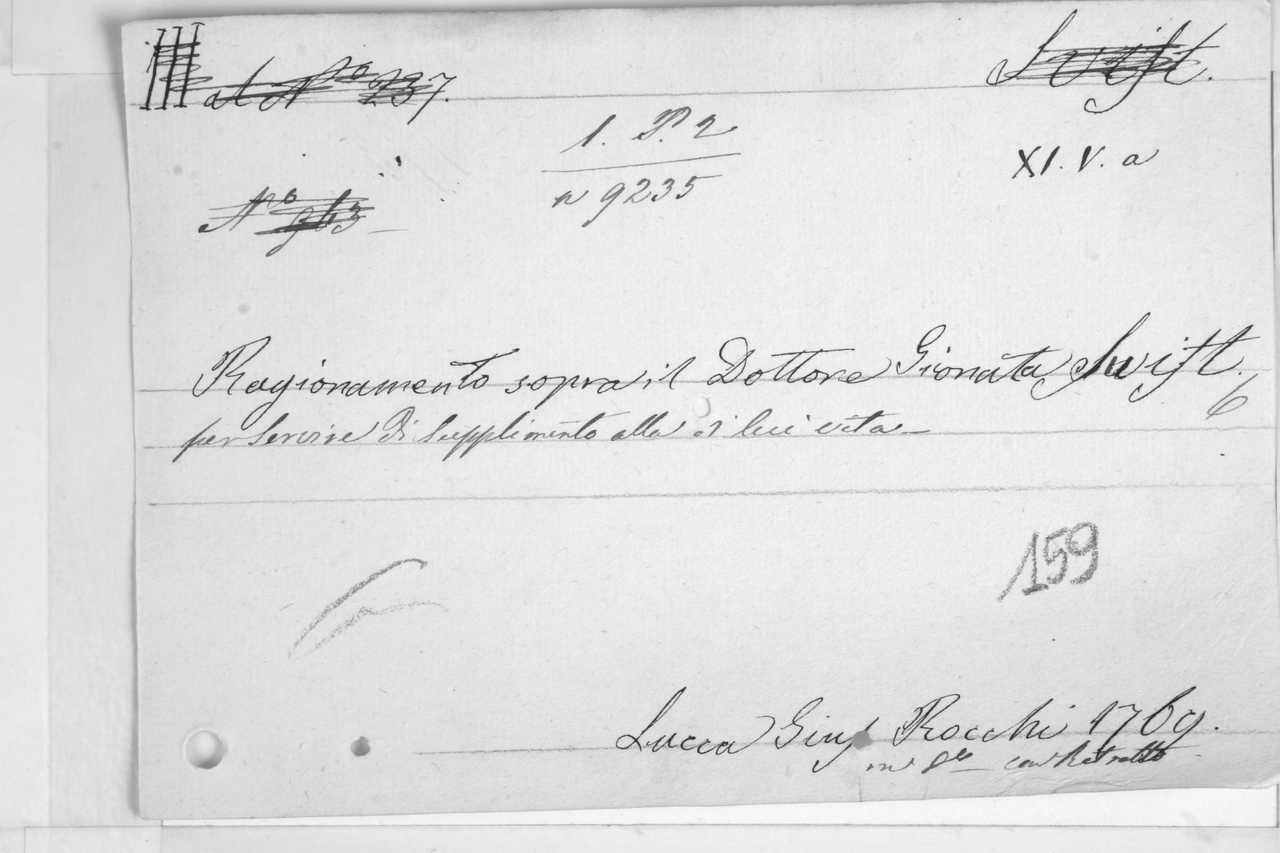 III al Nº 237. Swift.
1. P. 2
XI. V. a
Nº 963 n 9235
Ragionamento sopra il Dottore Gionata Swift.
per servire di supplimento alla di lui vita
6
159
Lucca Giuſ Rocchi 1769.
in 8º con Ritratto